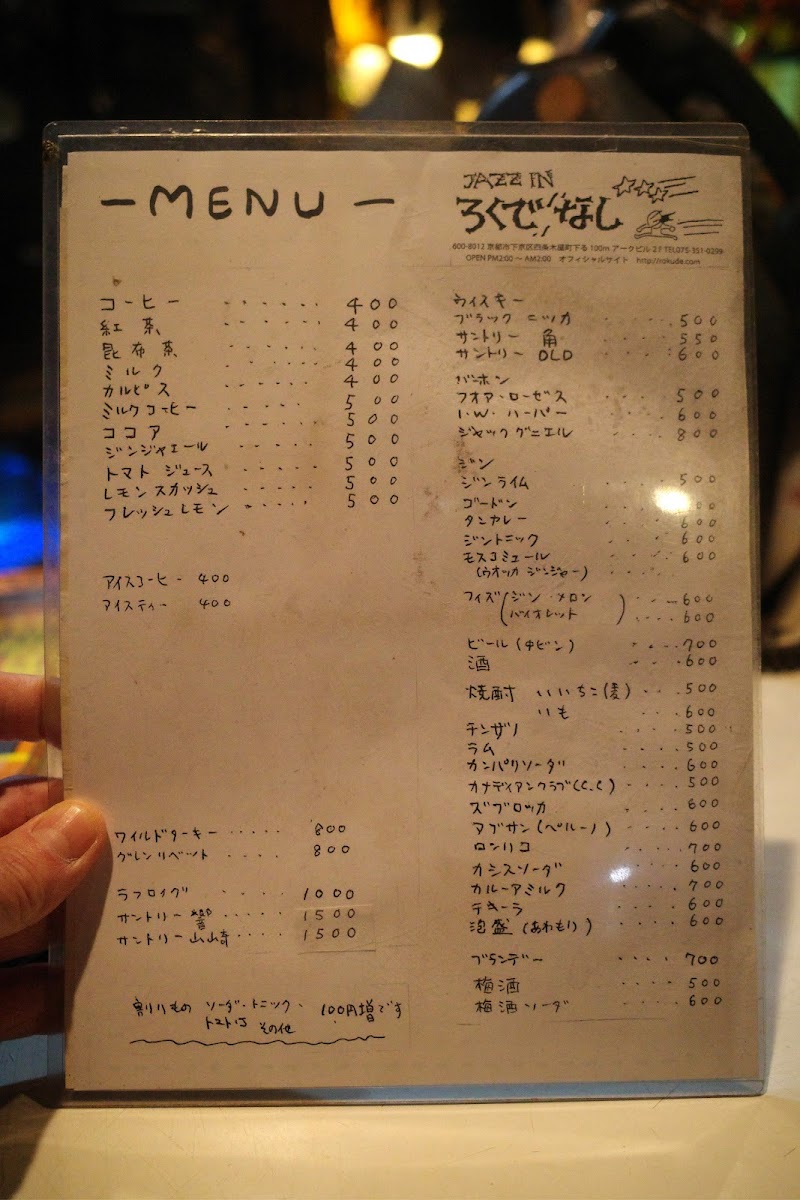 ーMENUー
コーヒー ‥‥‥ 400
紅茶 ‥‥‥ 400
昆布茶 ‥‥‥ 400
ミルク ‥‥‥ 400
カルピス ‥‥‥ 400
ミルクコーヒー ‥‥‥ 500
ココア ‥‥‥ 500
ジンジャエール ‥‥‥ 500
トマト ジュース ‥‥‥ 500
レモン スカッシュ ‥‥‥ 500
フレッシュ レモン ‥‥‥ 500
アイスコーヒー 400
アイスティー 400
ワイルドターキー ‥‥‥ 800
グレンリベット ‥‥‥ 800
ラフロイグ ‥‥‥ 1000
サントリー響 ‥‥‥ 1500
サントリー山崎 ‥‥‥ 1500
割りもの ソーダ・トニック・
トマト その他 100円増です
JAZZ IN
ろくでなし
600-8012 京都市下京区四条木屋町下る 100m アークビル 2F TEL075-351-0299
OPEN PM2:00 〜 AM2:00 オフィシャルサイト http://rokude.com
ウィスキー
ブラック ニッカ ‥‥‥ 500
サントリー 角 ‥‥‥ 550
サントリー OLD ‥‥‥ 600
バーボン
フォア・ローゼス ‥‥‥ 500
I・W・ハーパー ‥‥‥ 600
ジャック ダニエル ‥‥‥ 800
ジン
ジン ライム ‥‥‥ 500
ゴードン
タンカレー ‥‥‥ 600
ジントニック ‥‥‥ 600
モスコミュール ‥‥‥ 600
(ウオッカ ジンジャー)
フィズ(ジン・メロン ‥‥‥ 600
バイオレット) ‥‥‥ 600
ビール (中ビン) ‥‥‥ 700
酒 ‥‥‥ 600
焼酎 いいちこ(麦) ‥‥‥ 500
いも ‥‥‥ 600
チンザノ ‥‥‥ 500
ラム ‥‥‥ 500
カンパリソーダ ‥‥‥ 600
カナディアンクラブ(C.C) ‥‥‥ 500
ズブロッカ ‥‥‥ 600
アブサン(ペルーノ) ‥‥‥ 600
ロンリコ ‥‥‥ 700
カシスソーダ ‥‥‥ 600
カルーアミルク ‥‥‥ 700
テキーラ ‥‥‥ 600
泡盛 (あわもり) ‥‥‥ 600
ブランデー ‥‥‥ 700
梅酒 ‥‥‥ 500
梅酒ソーダ ‥‥‥ 600